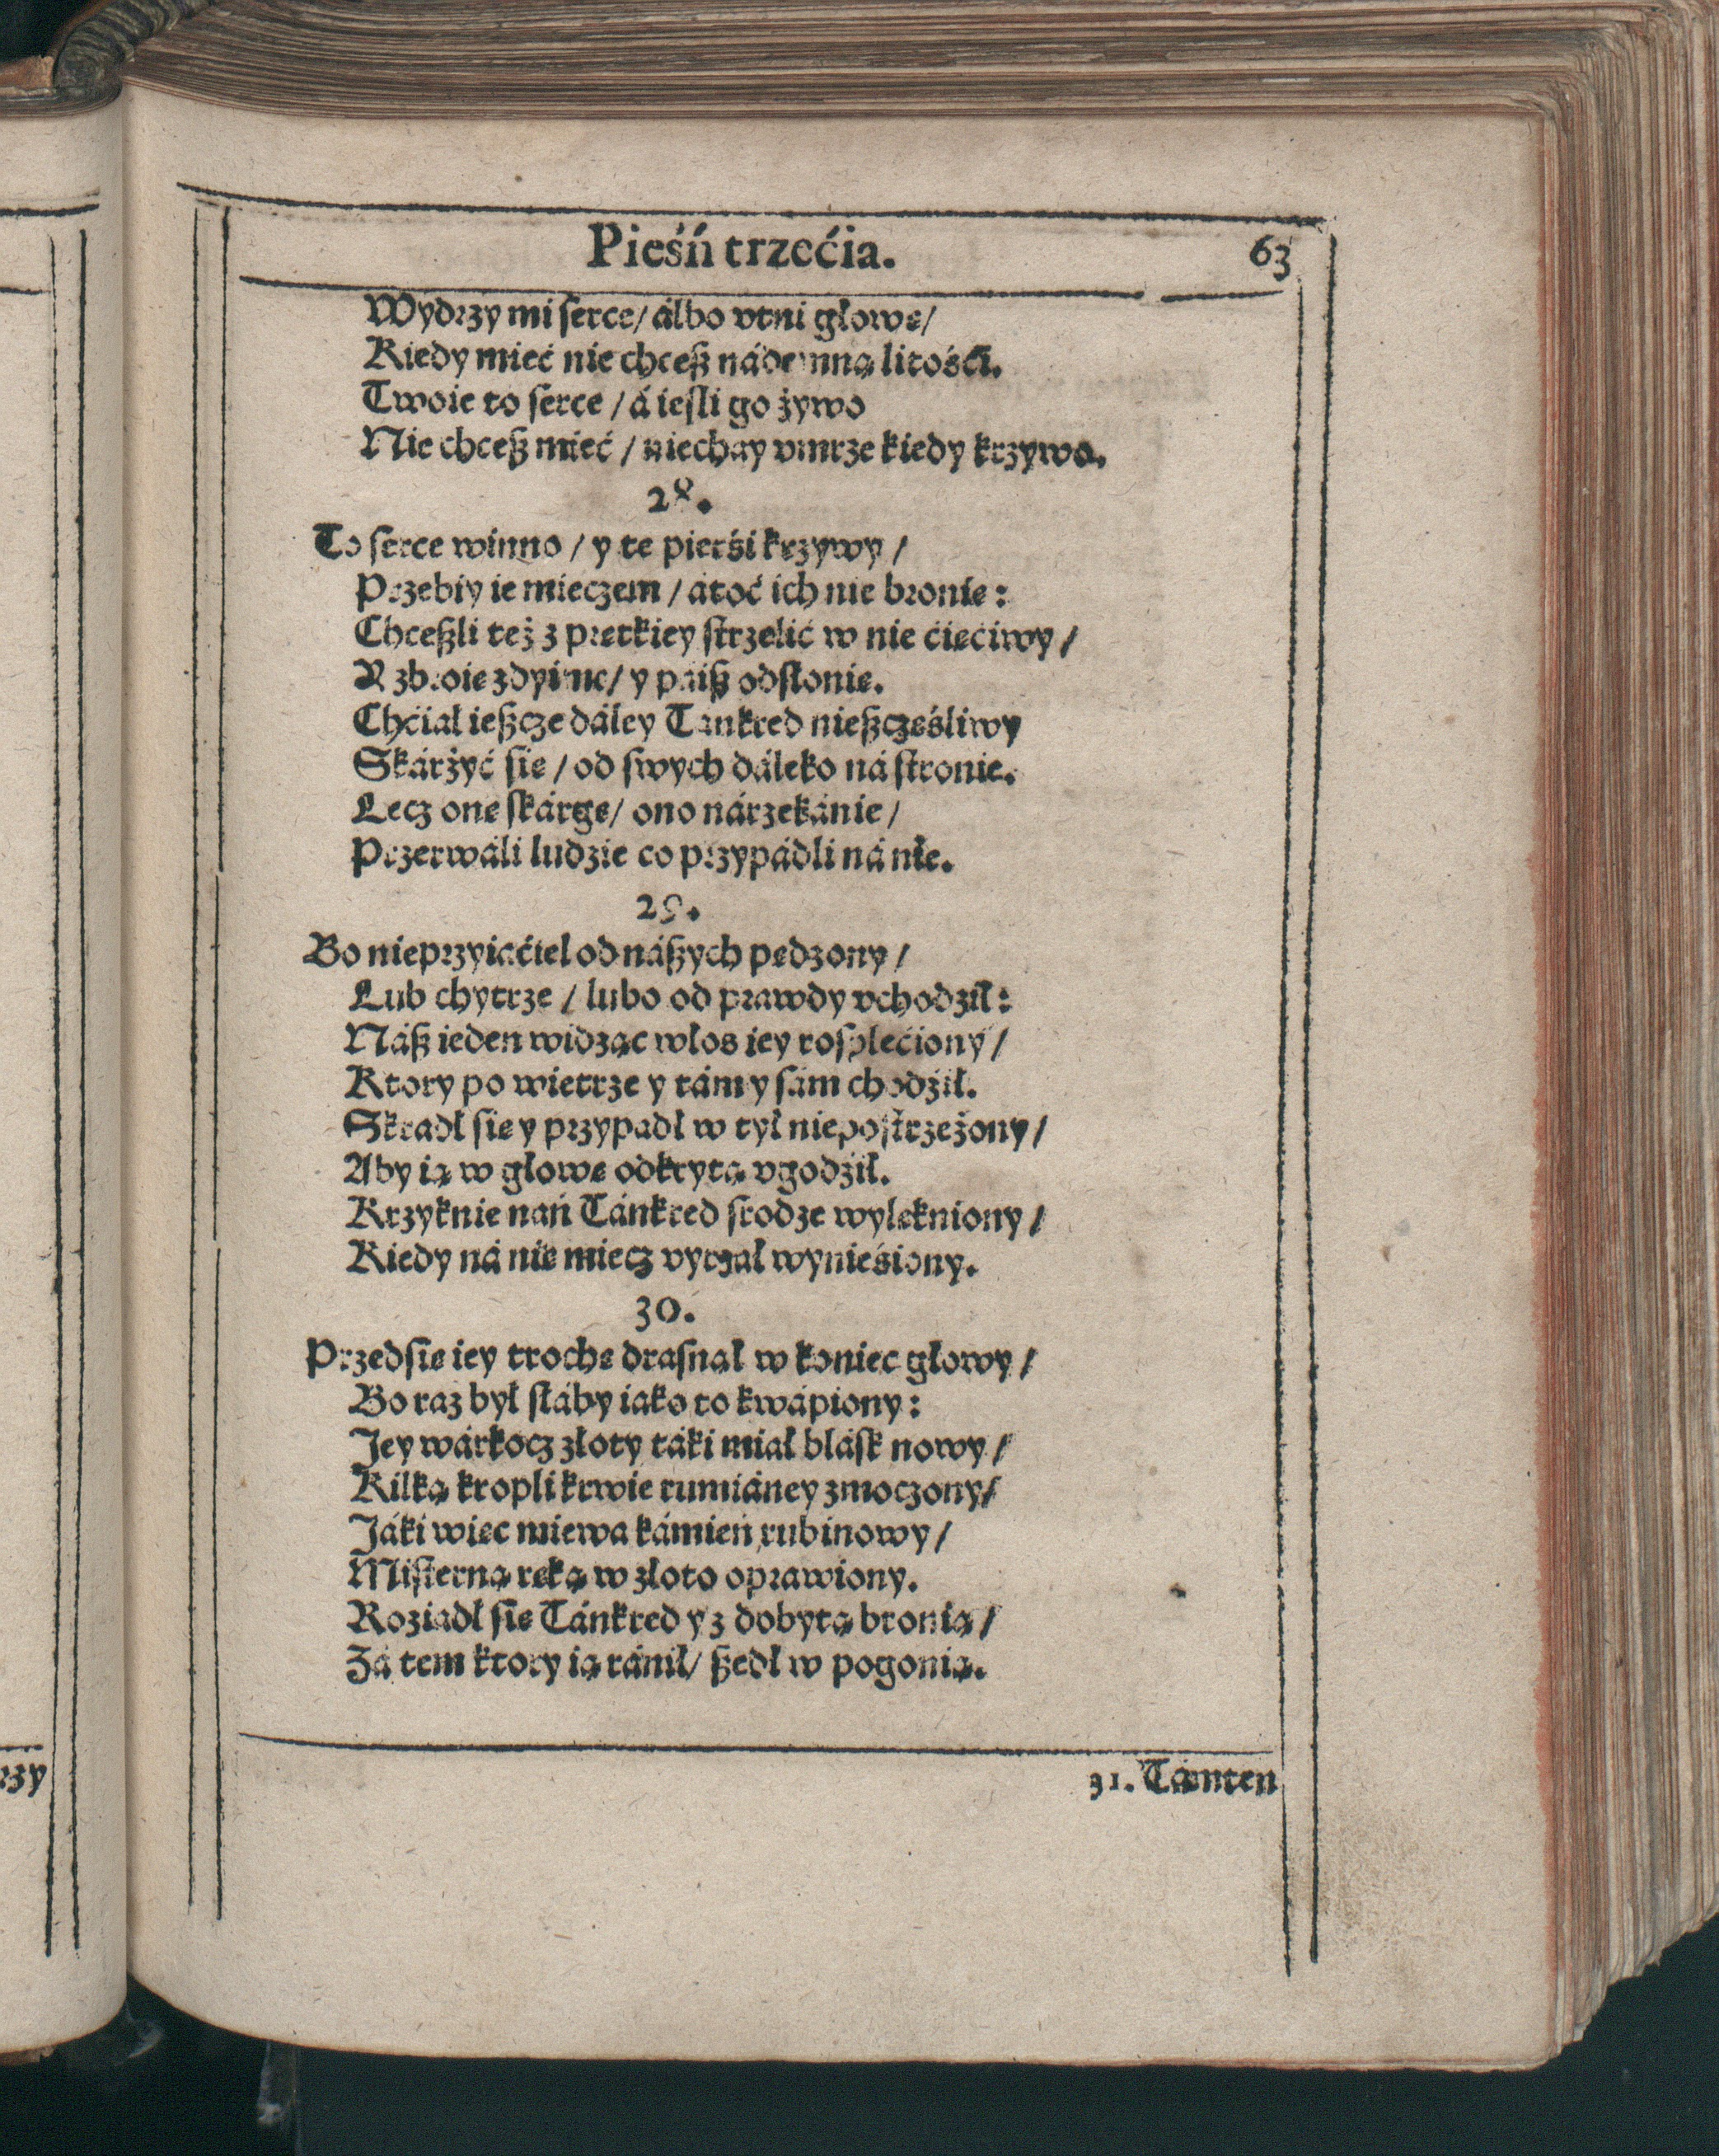 Pieśń trzećia. 63
Wydrzy mi ſerce/ álbo vtni głowę/
Kiedy mieć nie chceſz nádemną litośći.
Twoie to ſerce / á ieſli go żywo
Nie chceſz mieć / niechay vmrze kiedy krzywo.
28.
To ſerce winno / y te pierśi krzywy /
Przebiy ie mieczem / átoć ich nie bronię:
Chceſzli też z prętkiey ſtrzelić w nie ćięćiwy /
zbroię zdyimę/ y odſłonię.
Chćiał ieſzcze dáley Tankred nieſzczęśliwy
Skárżyć ſię / od ſwych dáleko ná ſtronie.
Lecz onę ſkárgę/ ono nárzekánie/
Przerwáli ludzie co przypádli ná nię.
29.
Bo nieprzyiaćiel od náſzych pędzony /
Lub chytrze / lubo od prawdy vchodził:
Náſz ieden widząc włos iey roſplećiony /
Ktory po wietrze y tám y ſám chodźił.
Skradł ſię y przypadł w tył niepoſtrzeżony/
Aby ią w głowę odkrytą vgodźił.
Krzyknie nań Tánkred ſrodze wylękniony /
Kiedy ná nię miecz vyrzał wynieśiony.
30.
Przedſię iey trochę draſnął w koniec głowy /
Bo raz był ſłáby iáko to kwápiony:
Jey wárkocz złoty táki miał bláſk nowy /
Kilką kropli krwie rumiáney zmoczony/
Jáki więc miewa kámień rubinowy/
Miſterną ręką w złoto oprawiony.
Roziadł ſię Tánkred y z dobytą bronią /
Zá tem ktory ią ránił/ ſzedł w pogonią.
31. Támten
rzy